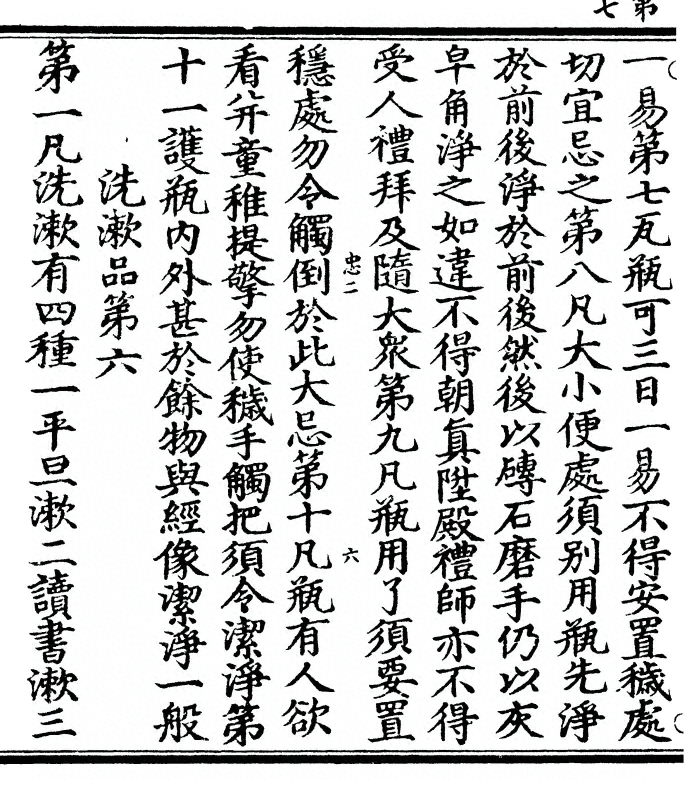 第七
一易第七瓦瓶可三日一易不得安置穢處
切宜忌之第八凡大小便處須別用瓶先淨
於前後淨於前後然後以磚石磨手仍以灰
皁角淨之如違不得朝真陞殿禮師亦不得
受人禮拜及隨大衆第九凡瓶用了須要置
忠二
六
穩處勿令觸倒於此大忌第十凡瓶有人欲
看并童稚提擎勿使穢手觸把須令潔淨第
十一護瓶内外甚於餘物與經像潔淨一般
洗漱品第六
第一凡洗漱有四種一平旦漱二讀書漱三